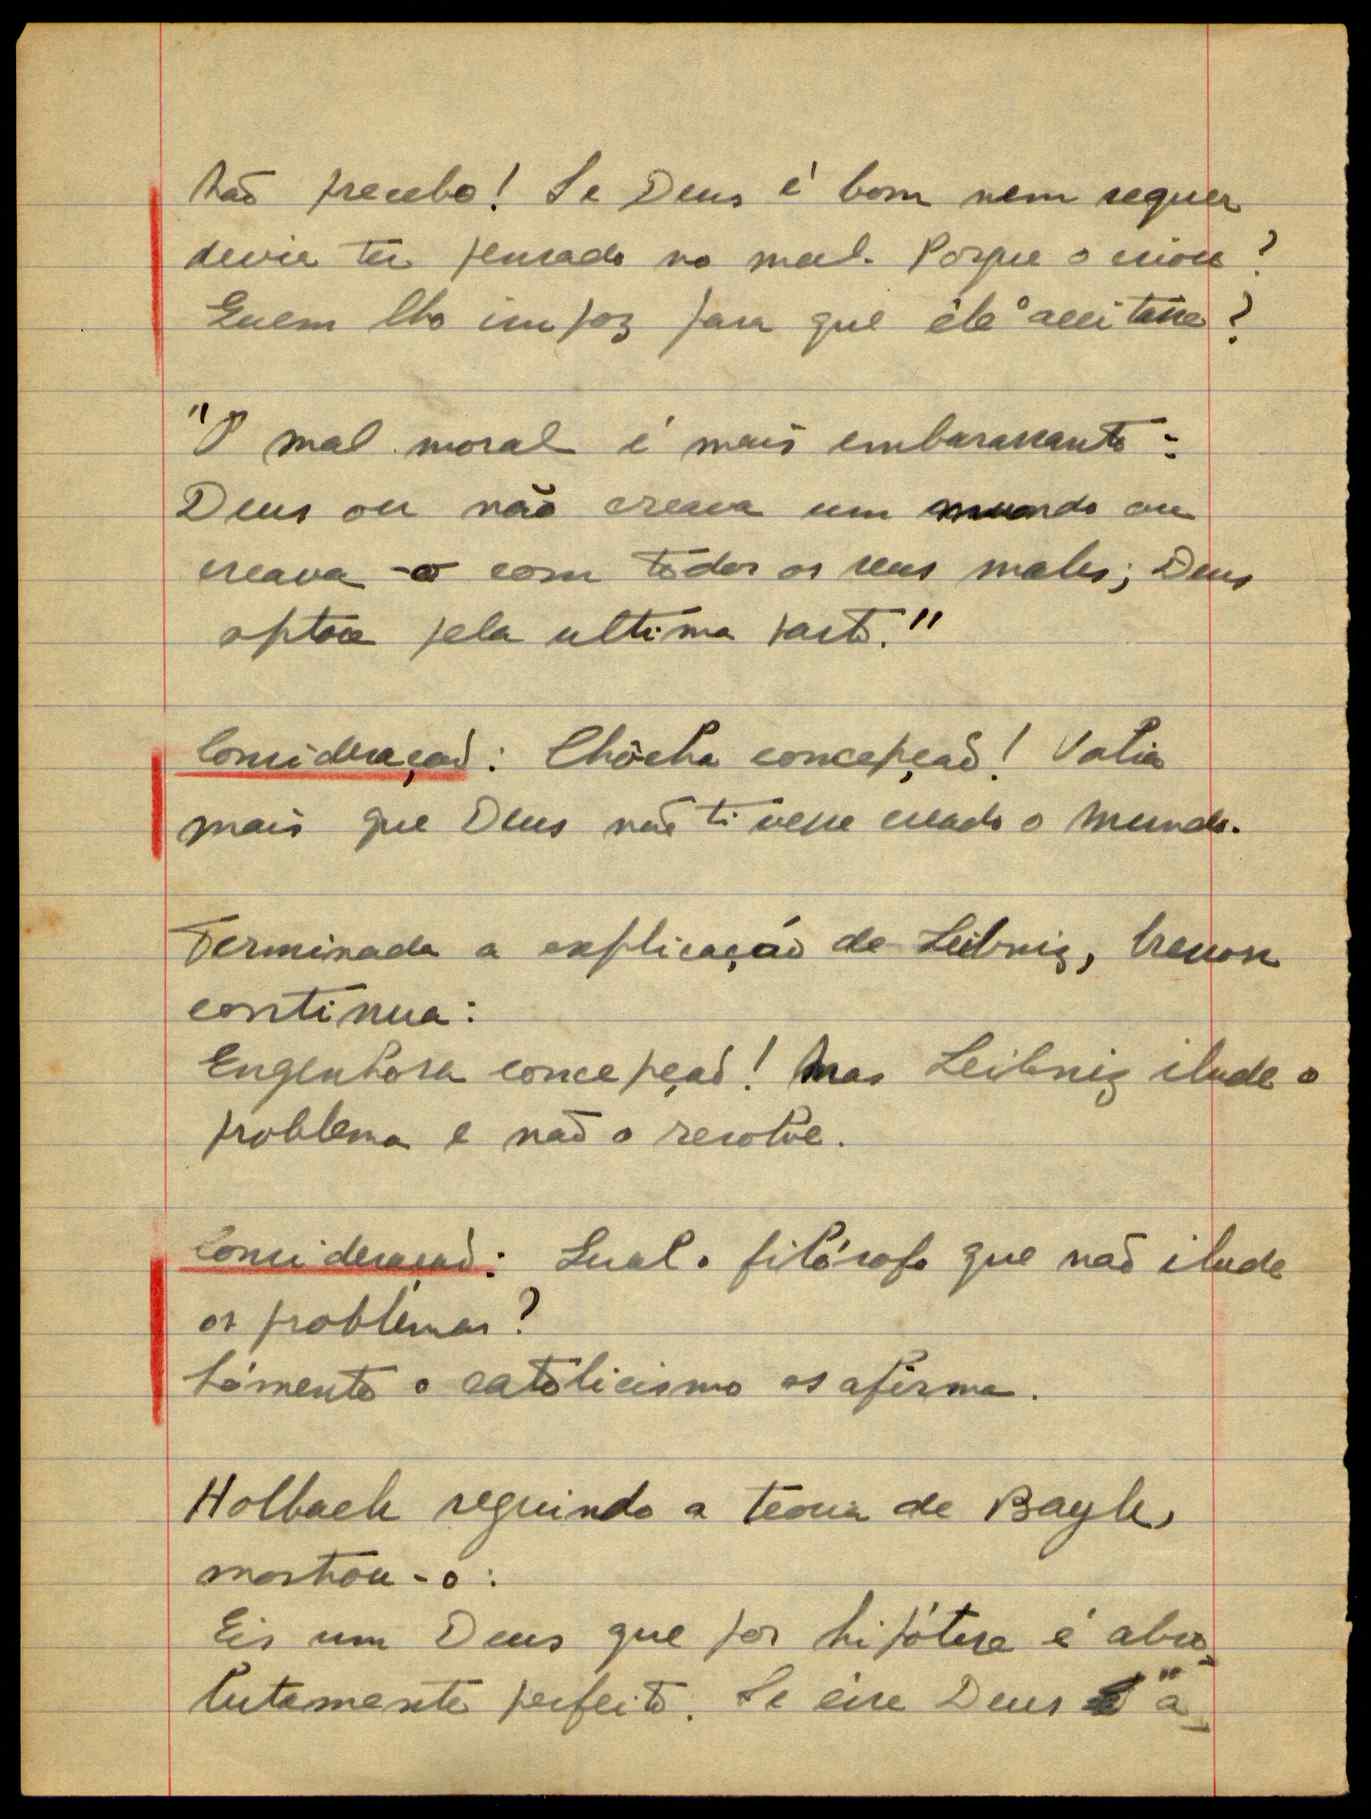 Não precebo! Se Deus é bom nem sequer
devia ter pensado no mal. Porque o criou?
Quem lho impoz para que êle o aceitasse?
"O mal moral é mais embarassante:
Deus ou não creava um mundo ou
creava-o com tôdos os seus males; Deus
optou pela ultima parte."
Consideração: Chôcha concepção! Valia
mais que Deus não tivesse creado o mundo.
Terminada a explicação de Leibniz, Cresson
continua:
Engenhosa concepção! Mas Leibniz ilude o
problema e não o resolve.
Consideração: Qual o filósofo que não ilude
os problemas?
Sómente o catolicismo os afirma.
Holbach seguindo a teoria de Bayle,
mostrou-o:
Eis um Deus que por hipótese é abso-
lutamente perfeito. Se êsse Deus "a